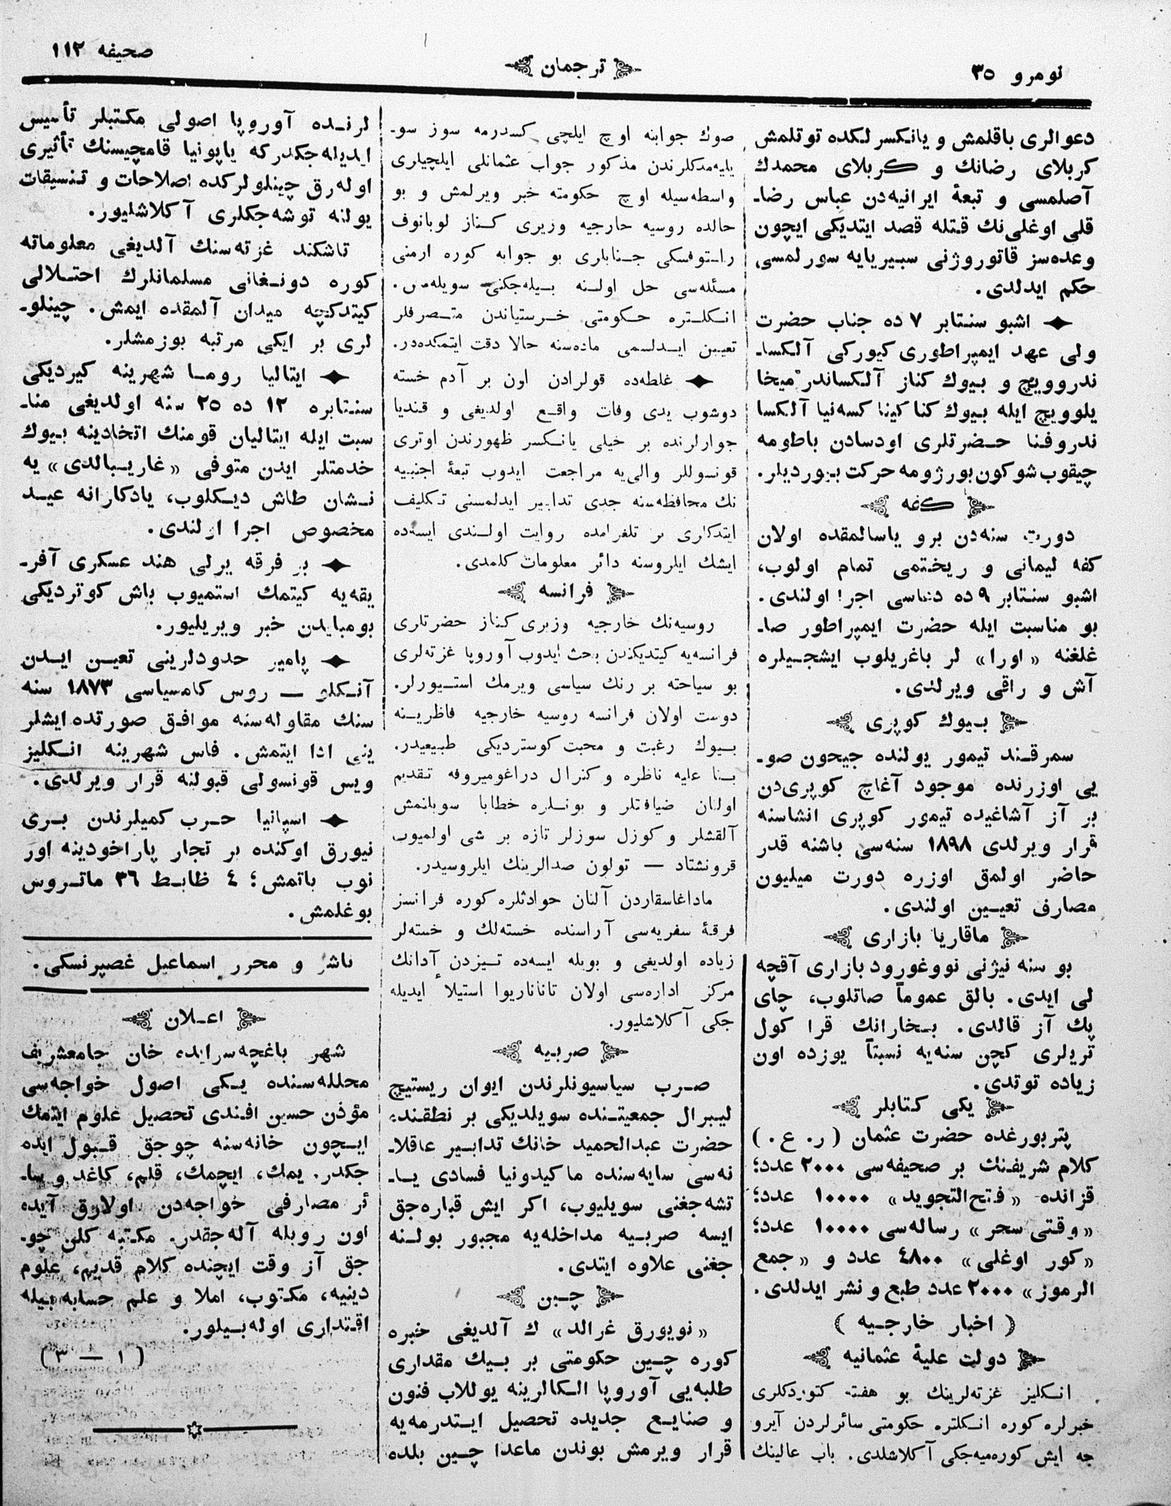 نومرو ٣٥
ترجمان
صحیفه ١١٢
دعوالری باقلمش و یانکسرلکده توتلمش
کربلای رضانك و کربلای محمدك
آصلمسی و تبعهٔ ایرانیه‌دن عباس رضاـ
قلی اوغلی‌نك قتله قصد ایتدیکی ایچون
وعده‌سز قاتوروژنی سیبریایه سورلمسی
حکم ایدلدی.
اشبو سنتابر ٧ ده جناب حضرت
ولی عهد ایمپراطوری کیورکی آلکساـ
ندروویچ و بیوك کناز آلکساندر میخا
یلوویچ ایله بیوك کناکینا کسه‌نیا آلکسا
ندروفنا حضرتلری اودسادن باطومه
چیقوب شوکون بورژومه حرکت بیوردیلر.
کفه
دورت سنه‌دن برو یاسالمقده اولان
کفه لیمانی و ریختمی تمام اولوب،
اشبو سنتابر ٩ ده دعاسی اجرا اولندی.
بو مناسبت ایله حضرت ایمپراطور صاـ
غلغنه «اورا» لر باغریلوب ایشجیلره
آش و راقی ویرلدی.
بیوك کوپری
سمرقند تیمور یولنده جیحون صوـ
یی اوزرنده موجود آغاچ کوپری‌دن
بر آز آشاغیده تیمور کوپری انشاسنه
قرار ویرلدی ١٨٩٨ سنه‌سی باشنه قدر
حاضر اولمق اوزره دورت میلیون
مصارف تعیین اولندی.
ماقاریا بازاری
بو سنه نیژنی نووغورود بازاری آقچه
لی ایدی. بالق عموماً صاتلوب، چای
پك آز قالدی. بخارانك قرا کول
تریلری کچن سنه‌یه نسبتاً یوزده اون
زیاده توتدی.
یکی کتابلر
پتربورغده حضرت عثمان (ر. ع.)
کلام شریفنك بر صحیفه‌سی ٢٠٠٠ عدد؛
قزانده «فتح‌التجوید» ١٠٠٠٠ عدد؛
«وقتی سحر» رساله‌سی ١٠٠٠٠ عدد؛
«کور اوغلی» ٤٨٠٠ عدد و «جمع
الرموز» ٢٠٠٠ عدد طبع و نشر ایدلدی.
(اخبار خارجیه)
دولت علیهٔ عثمانیه
انکلیز غزته‌لرینك بو هفته کتوردکلری
خبرلره کوره انکلتره حکومتی سائرلردن آیرو
جه ایش کوره‌میه‌جکی آکلاشلدی. باب عالینك
صوك جوابنه اوچ ایلچی کسدرمه سوز سوـ
یلیه‌مدکلرندن مذکور جواب عثمانلی ایلچیلری
واسطه‌سیله اوچ حکومته خبر ویرلمش و بو
حالده روسیه خارجیه وزیری کناز لوبانوف
راستوفسکی جنابلری بو جوابه کوره ارمنی
مسئله‌سی حل اولنه بیله‌جکنی سویله‌مش.
انکلتره حکومتی خرستیاندن متصرفلر
تعیین ایدلمسی ماده‌سنه حالا دقت ایتمکده‌در.
غلطه‌ده قولرادن اون بر آدم خسته
دوشوب یدی وفات واقع اولدیغی و قندیا
جوارلرنده بر خیلی یانکسر ظهورندن اوتری
قونسوللر والی‌یه مراجعت ایدوب تبعهٔ اجنبیه
نك محافظه‌سنه جدی تدابیر ایدلمسنی تکلیف
ایتدکلری بر تلغرامده روایت اولندی ایسه‌ده
ایشك ایلروسنه دائر معلومات کلمدی.
فرانسه
روسیه‌نك خارجیه وزیری کناز حضرتلری
فرانسه‌یه کیتدیکندن بحث ایدوب آوروپا غزته‌لری
بو سیاحته بر رنك سیاسی ویرمك استیورلر.
دوست اولان فرانسه روسیه خارجیه ناظرینه
بیوك رغبت و محبت کوستردیکی طبیعیدر.
بنا علیه ناظره و کنرال دراغومیروفه تقدیم
اولنان ضیافتلر و بونلره خطابا سویلنمش
آلقشلر و کوزل سوزلر تازه بر شی اولمیوب
قرونشتاد — تولون صدالرینك ایلروسیدر.
ماداغاسقاردن آلنان حوادثلره کوره فرانسز
فرقهٔ سفریه‌سی آراسنده خسته‌لك و خسته‌لر
زیاده اولدیغی و بویله ایسه‌ده تیزدن آدانك
مرکز اداره‌سی اولان تاناناریوا استیلاء ایدیله
جکی آکلاشلیور.
صربیه
صرب سیاسیونلرندن ایوان ریستیچ
لیبرال جمعیتنده سویلدیکی بر نطقنده
حضرت عبدالحمید خانك تدابیر عاقلاـ
نه‌سی سایه‌سنده ماکیدونیا فسادی یاـ
تشه‌جغنی سویلیوب، اکر ایش قباره‌جق
ایسه صربیه مداخله‌یه مجبور بولنه
جغنی علاوه ایتدی.
چین
«نویورق غرالد» ك آلدیغی خبره
کوره چین حکومتی بر بیك مقداری
طلبه‌یی آوروپا الکالرینه یوللاب فنون
و صنایع جدیده تحصیل ایتدرمه‌یه
قرار ویرمش بوندن ماعدا چین بلده
لرنده آوروپا اصولی مکتبلر تأسیس
ایدیله‌جکدرکه یاپونیا قامچیسنك تأثیری
اوله‌رق چینلولرکده اصلاحات و تنسیقات
یولنه توشه‌جکلری آکلاشلیور.
تاشکند غزته‌سنك آلدیغی معلوماته
کوره دونغانی مسلمانلرك احتلالی
کیتدکچه میدان آلمقده ایمش. چینلوـ
لری بر ایکی مرتبه بوزمشلر.
ایتالیا روما شهرینه کیردیکی
سنتابره ١٢ ده ٢٥ سنه اولدیغی مناـ
سبت ایله ایتالیان قومنك اتخادینه بیوك
خدمتلر ایدن متوفی «غاریبالدی» یه
نشان طاش دیکلوب، یادکارانه عید
مخصوص اجرا اولندی.
بر فرقه یرلی هند عسکری آفرـ
یقه‌یه کیتمك استمیوب باش کوتردیکی
بومبایدن خبر ویریلیور.
پامیر حدودلرینی تعیین ایدن
آنکلو — روس کامسیاسی ١٨٧٣ سنه
سنك مقاوله‌سنه موافق صورتده ایشلر
ینی ادا ایتمش. فاس شهرینه انکلیز
ویس قونسولی قبولنه قرار ویرلدی.
اسپانیا حرب کمیلرندن بری
نیورق اوکنده بر تجار پاراخودینه اور
نوب باتمش؛ ٤ ظابط ٣٦ ماتروس
بوغلمش.
ناشر و محرر اسماعیل غصپرنسکی.
اعلان
شهر باغچه‌سرایده خان جامعشریف
محلله‌سنده یکی اصول خواجه‌سی
مؤذن حسین افندی تحصیل علوم ایتمك
ایچون خانه‌سنه چوجق قبول ایده
جکدر. یمك، ایچمك، قلم، کاغد و ساـ
ئر مصارفی خواجه‌دن اولارق آیده
اون روبله آله‌جقدر. مکتبه کلن چوـ
جق آز وقت ایچنده کلام قدیم، علوم
دینیه، مکتوب، املا و علم حسابه بیله
اقتداری اوله‌بیلور.
(١ — ٣)